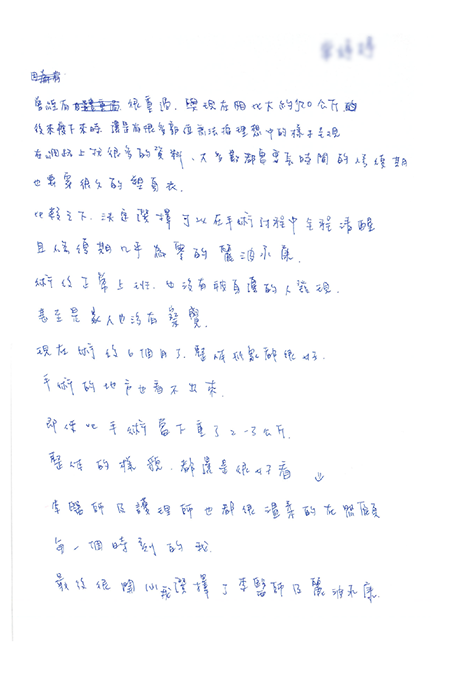 曾經有很重過，與現在相比大約50公斤
後來瘦下來時，還是有很多部位無法有理想中的樣子呈現
在網路上找很多的資料，大多數都需要長時間的修復期
也要穿很久的塑身衣。
比較之下，決定選擇可以在手術過程中全程清醒
且修復期几乎為零的麗波永康。
術後了算上班，也沒有眼直儂的人發現，
甚至是家人也沒有察覺。
現在術後6個月了，整體現象都很好。
手術的地方也看不出來。
即使比手術當下重了2-3公斤。
整體的樣貌，都還是很好看
李醫師及護理師也都很溫柔的在照顧
每一個時刻的我.
最後很開心我選擇了李醫師及麗波永康.